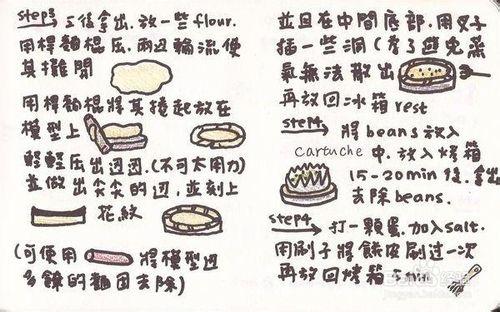 step3 5後拿出.放一些flour.
用桿麵棍压.兩边輪流使
其攤開
用桿麵棍將其捲起放在
模型上
輕輕压出边边.(不可太用力)
並做出尖尖的边,並刻上
花紋
(可使用 將模型边
多餘的麵团去除)
並且在中間底部.用叉子
插一些洞(為了避免蒸
氣無法散出
再放回冰箱rest
step4 將beans放入
cartuche中.放入烤箱
15-20min後.拿出
去除beans.
step4 打一顆蛋.加入salt.
用刷子將餅皮刷过一次
再放回烤箱5min